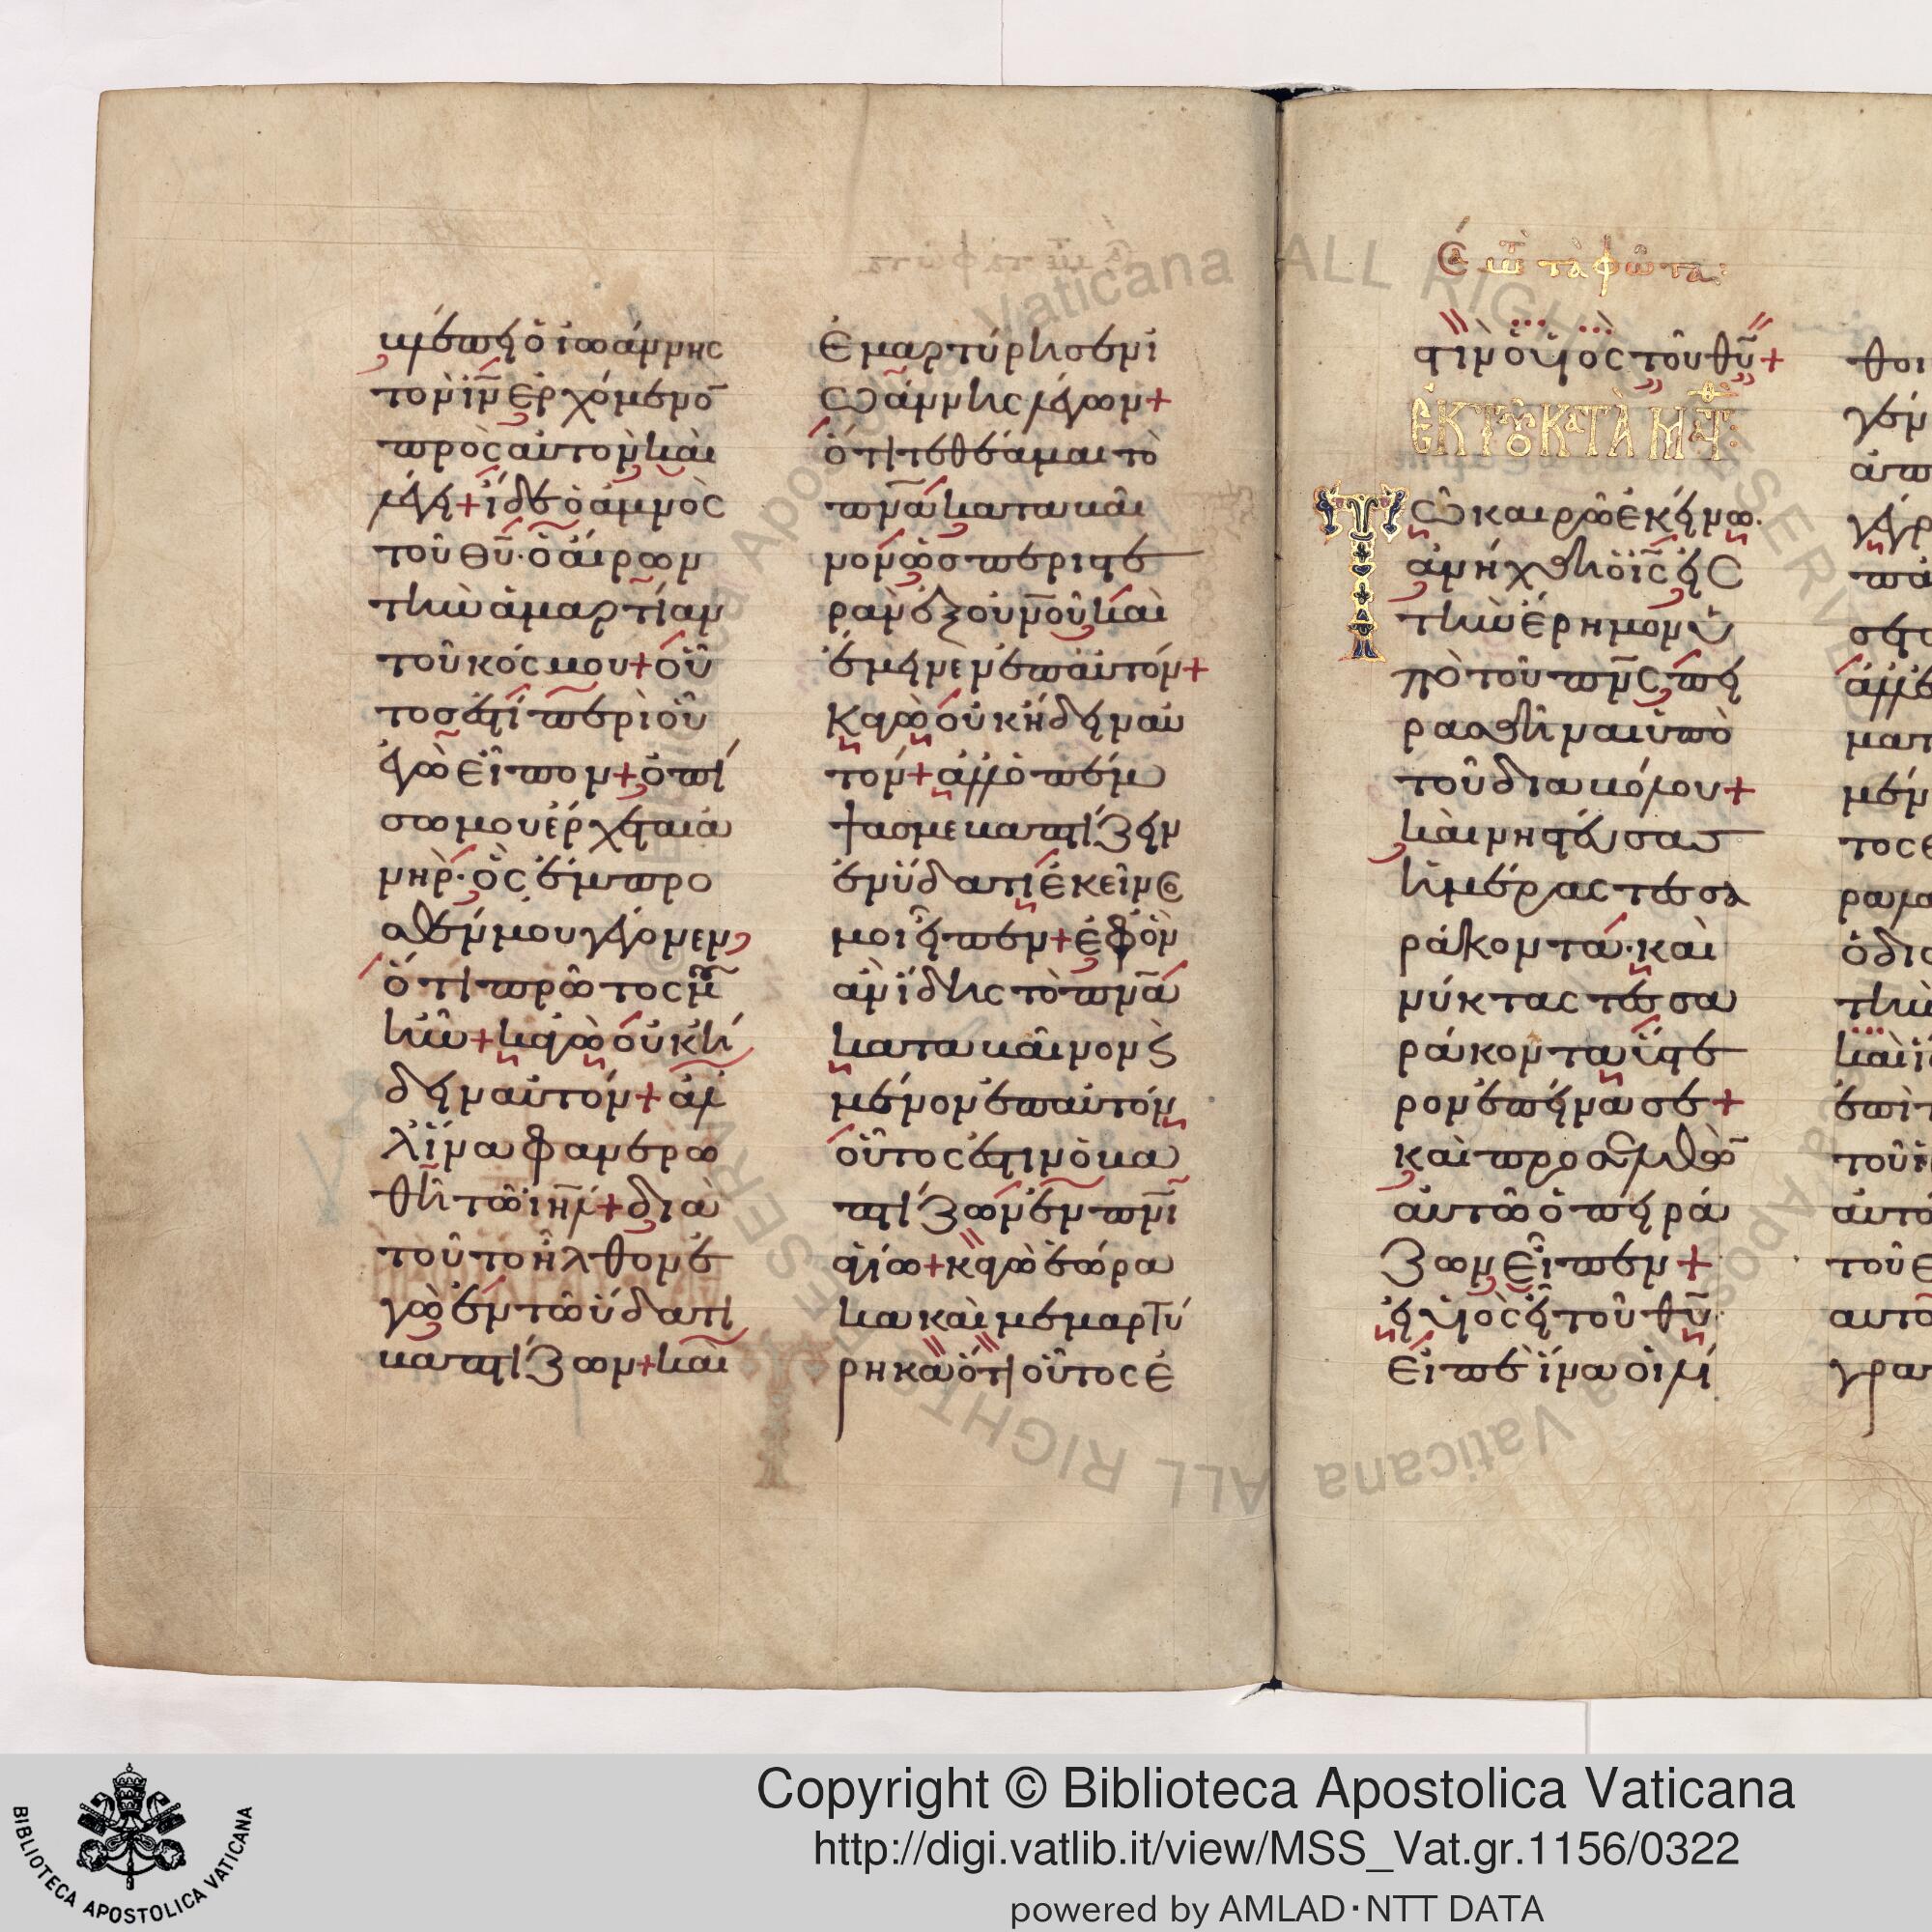 βλέπει ὁ ἰωάννης
τὸν ἰν̅ ἐρχόμενο̅
πρὸς αὐτὸν καὶ
λέγει + ἴδε ὁ ἀμνὸς
τοῦ θυ̅· ὁ αἴρων
τὴν ἁμαρτίαν
τοῦ κόσμου + οὗ
τός ἐστι περὶ οὗ
ἐγὼ εἶπον + ὀπί
σω μου ἔρχεται ἀ
νὴρ· ὃς ἔμπρο
σθέν μου γέγονεν
ὅτι πρῶτός μ̅
ἦν + κἀγὼ οὐκ ἤ
δειν αὐτόν + ἀλ
λ' ἵνα φανερω
θῆ τῶ ἰηλ̅ + διὰ
τοῦτο ἦλθον ἐ
γὼ ἐν τῶ ὕδατι
βαπτίζων + καὶ
ἐμαρτύρησεν ἰ
ωάννης λέγων +
ὅτι τεθέαμαι τὸ
πν̅α καταβαῖ
νον ὡσ περιστε
ρὰν ἐξ οὐν̅οῦ καὶ
ἔμεινεν ἐπ αὐτόν +
κἀγὼ οὐκ ἤδειν αὐ
τόν + ἀλλ' ὁ πέμ
ψας με βαπτίζειν
ἐν ὕδατι ἐκεῖνός
μοι εἶπεν + ἐφ' ὃν
ἂν ἴδης τὸ πν̅α
καταβαῖνον κ̀
μένον ἐπ αὐτόν
οὗτός ἐστιν ὁ βα
πτίζων ἐν πν̅ι
ἁγίω + κἀγὼ ἑώρα
κα καὶ μεμαρτύ
ρηκα ὅτι οὗτός ἐ
Εἰς τὰ φῶτα:
στιν ὁ υἱὸς τοῦ θυ̅ +
ἐκ τοῦ κατὰ Ματ:
Τῶ καιρῶ ἐκείνω·
ἀνήχθη ὁ ις̅ εἰς
τὴν ἔρημον ὑ
πὸ τοῦ πν̅ς πει
ρασθῆναι ὑπὸ
τοῦ διαβόλου +
καὶ νηστεύσας
ἡμέρας τεσσα
ράκοντα· καὶ
νύκτας τεσσα
ράκοντα ὕστε
ρον ἐπείνασε +
καὶ προσελθὼ̅
αὐτῶ ὁ πειρά
ζων εἶπεν +
εἰ υἱὸς εἶ τοῦ θυ̅·
εἰπὲ ἵνα οἱ λί
Copyright © Biblioteca Apostolica Vaticana
http://digi.vatlib.it/view/MSS_Vat.gr.1156/0322
powered by AMLAD·NTT DATA
BIBLIOTECA APOSTOLICA VATICANA